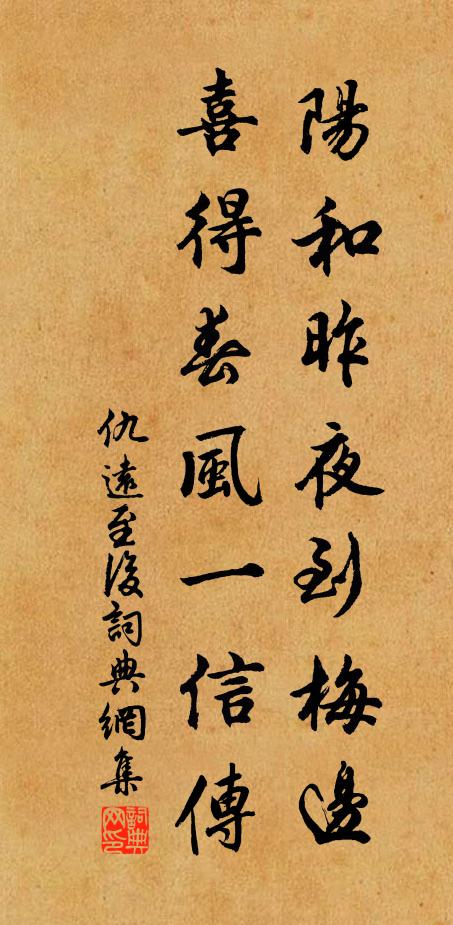 陽和昨夜到梅邊
喜得春風一信傳
仇遠至後詞典網集
詞典网印